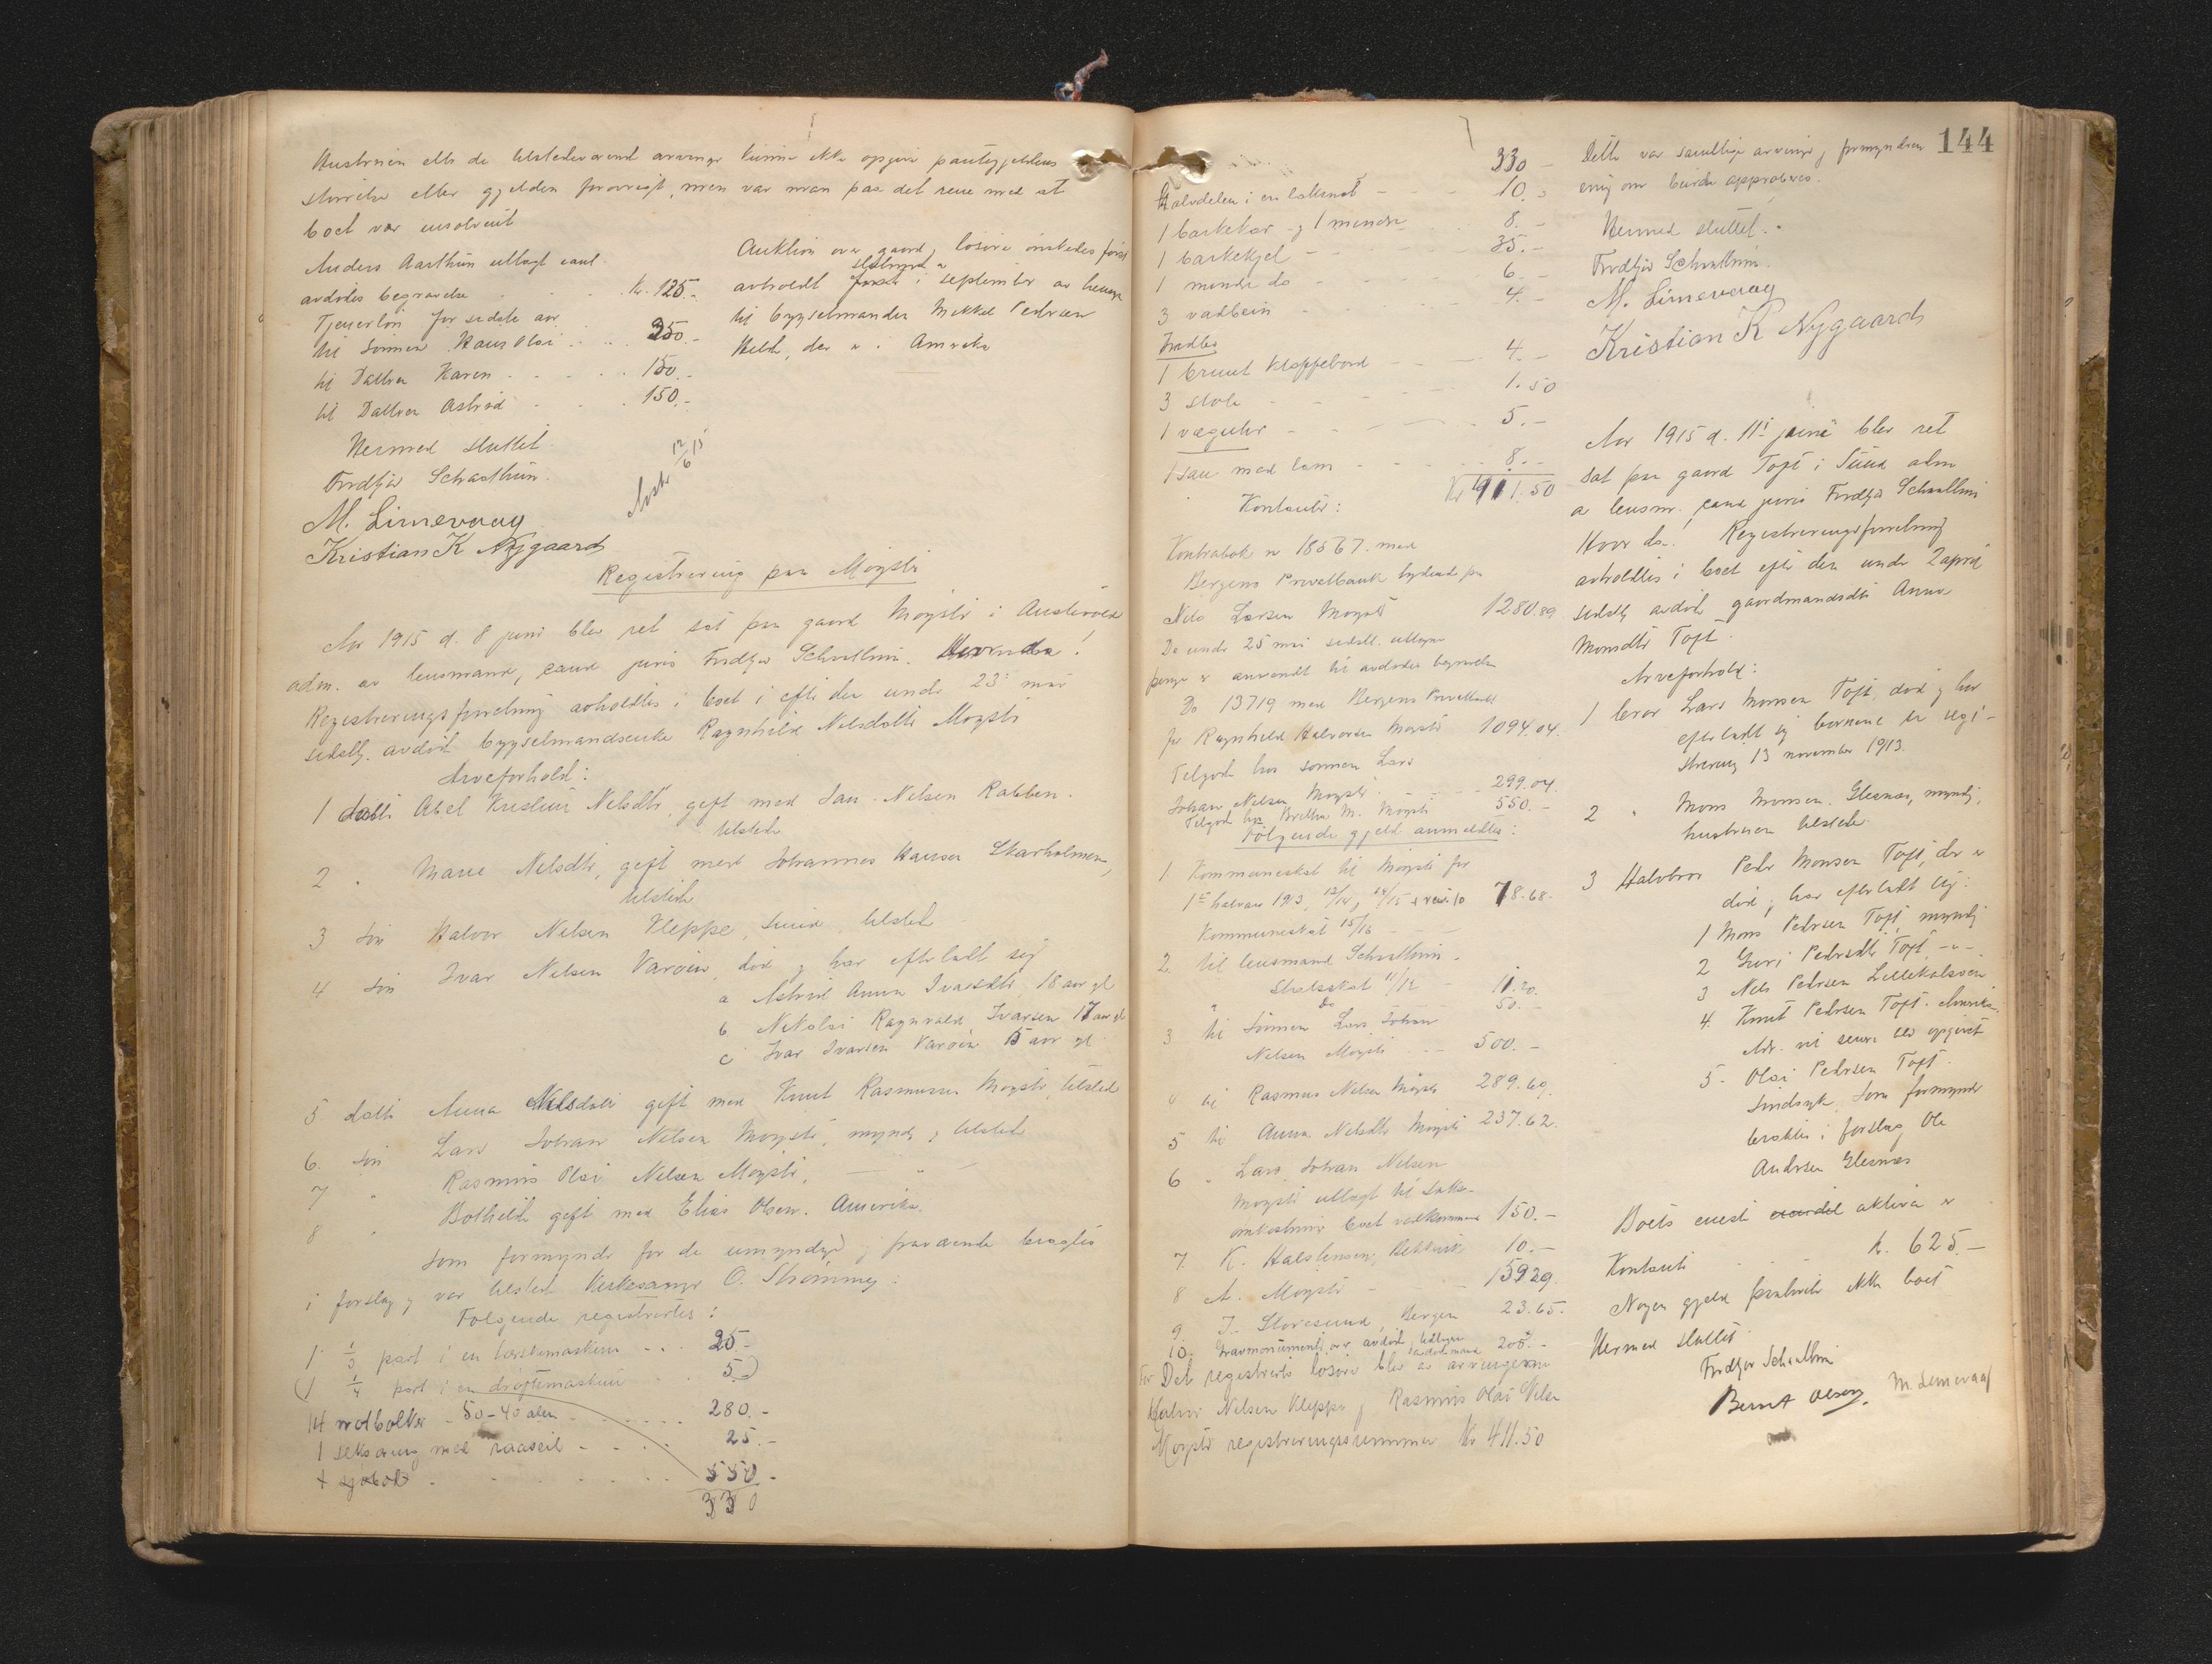 Hustruen eller de tilstedeværend arvinge kunne ikke opgive pantegjeldens
størrelse eller gjelden forøvrigt, men var man paa det rene med at
boet var insolvent
Anders Aarthun utlagt
avdødes begravelse . . . kr. 125.-
Tjenerløn for sidste aar
til sønnen Hans Olai . . 350.-
til Datter Karen . . . . 150.-
til Datter Astrid . . . 150.-
Hermed sluttet.
Fredtjov Schaathun.
M. Limevaag
Kristian K Nygaard
Auktion over gaard, løsøre ønskedes først
avholdt i september av hensyn
til bygselmanden Mikkel Pedersen
Hilde, der er i Amerika
12/6 15
Registrering paa Møgster
Aar 1915 d. 8 juni blev ret sat paa gaard Møgster i Austevold
adm. av lensmand, cand juris Fredtjov Schaathun. Hvorda!
Registreringsforretning avholdtes i boet i efter den under 23 mai
sidstl. avdød bygselmandsenke Ragnhild Nilsdatter Møgster
Arveforhold:
1 datter Abel Kristine Nilsdtr, gift med Jan Nilsen Rabben.
tilstede
2 " Marie Nilsdtr, gift med Johannes Hansen Skarholmen,
tilstede
3 søn Halvor Nilsen Kleppe, Sund tilstede
4 søn Ivar Nilsen Varøen, død og har efterladt sig
a Astrid Anna Ivarsdtr 18 aar gl
b Nikolai Ragnvald Ivarsen 17 aar gl
c Ivar Ivarsen Varøen 15 aar gl
5 datter Anna Nilsdatter gift med Knut Rasmussen Møgster, tilstede
6. søn Lars Johan Nilsen Møgster, myndig, tilstede
7 " Rasmus Olai Nilsen Møgster, — " —
8 " Bothilde gift med Elias Olsen. Amerika.
Som formynder for de umyndige og fraværende bragtes
i forslag og var tilstede Kirkesanger O. Strømmen:
Følgende registrertes:
1 1/3 part i en tærskemaskine . . . 25.-
(1 1/4 part i en drøftemaskine . . 5.-)
14 notbolker - 50-40 alen . . . . . 280.-
1 seksæring med raaseil - . . . 25.-
1 sjøbok . . . . . . . 550.-
330
330 -
Halvdelen i en laksenot - 10.-
1 barkekar og 1 mindre 8.-
1 barkekjel - 35.-
1 mindre do - 6.-
3 vadbein - 4.-
Indbo
1 brunt klappebord - 4.-
3 stole - 1.50
1 væguhr - 5.-
1 sau med lam - 8.-
Kr 411.50
Kontanter:
Kontrabok nr 18567. med
Bergens Privatbank lydende paa
Nils Larsen Møgster 1280.89
Da under 25 mai sidstl. uttagne
penge er anvendt til avdødes begravelse
Do 13719 med Bergens Privatbank
for Ragnhild Halvorsen Møgster 1094.04.
Tilgode hos sønnen Lars
Johan Nilsen Møgster . . . 299.04.
Tilgode hos Brithe M. Møgster 550.-
Følgende gjeld anmeldtes:
1. Kommuneskat til Møgster for
1ste halvaar 1913, 13/14, 14/15 78.68.
Kommuneskat 15/16 - -
2. til lensmand Schaathun.
Statsskat 11/12 - 11.20.
" Do 50.-
3 til sønnen Lars Johan
Nilsen Møgster . . - 500.-
4 til Rasmus Nilsen Møgster 289.60.
5 til Anna Nilsdtr Møgster 237.62.
6 " Lars Johan Nilsen
Møgster utlagt til
omkostninger boet vedkommende 150.-
7. K. Halstensen, Bekkervik 10.-
8 A. Møgster - - 1592.29.
9 J. Storesund, Bergen 23.65.
10. Gravmonument over avdøde 200.-
For Det registrerte løsøre blev av arvingerne
Halvor Nilsen Kleppe og Rasmus Olai Nilsen
Møgster registreringssummen Kr 411.50
144
Dette var samtlige arvinger og formynderen
enig om burde approberes.
Hermed sluttet..
Fredtjov Schaathun.
M. Limevaag
Kristian K Nygaard
Aar 1915 d. 11 juni blev ret
sat paa gaard Toft i Sund adm
av lensm. cand juris Fredtjov Schaathun
Hvor da! Registreringsforretning
avholdtes i boet efter den under 2 april
sidstl. avdøde gaardmandsdtr Anna
Monsdtr Toft.
Arveforhold:
1 bror Lars Monsen Toft, død og har
efterladt sig børnene se regi-
strering 13 november 1913.
2 " Mons Monsen Glesnæs, myndig,
hustruen tilstede.
3 Halvbror Peder Monsen Toft, der er
død og har efterladt sig:
1 Mons Pedersen Toft, myndig
2 Guri Pedersdtr Toft, -"-
3 Nils Pedersen Lillekalsøen
4. Knut Pedersen Toft. Amerika.
Adr. vil senere bli opgivet
5. Olai Pedersen Toft.
sindssyk. Som formynder
bragtes i forslag Ole
Andersen Glesnæs
Boets eneste aktiva er
Kontanter k. 625.-
Nogen gjeld paahviler ikke boet
Hermed sluttet
Fredtjov Schaathun
Bernt Olsen. M. Limevaag